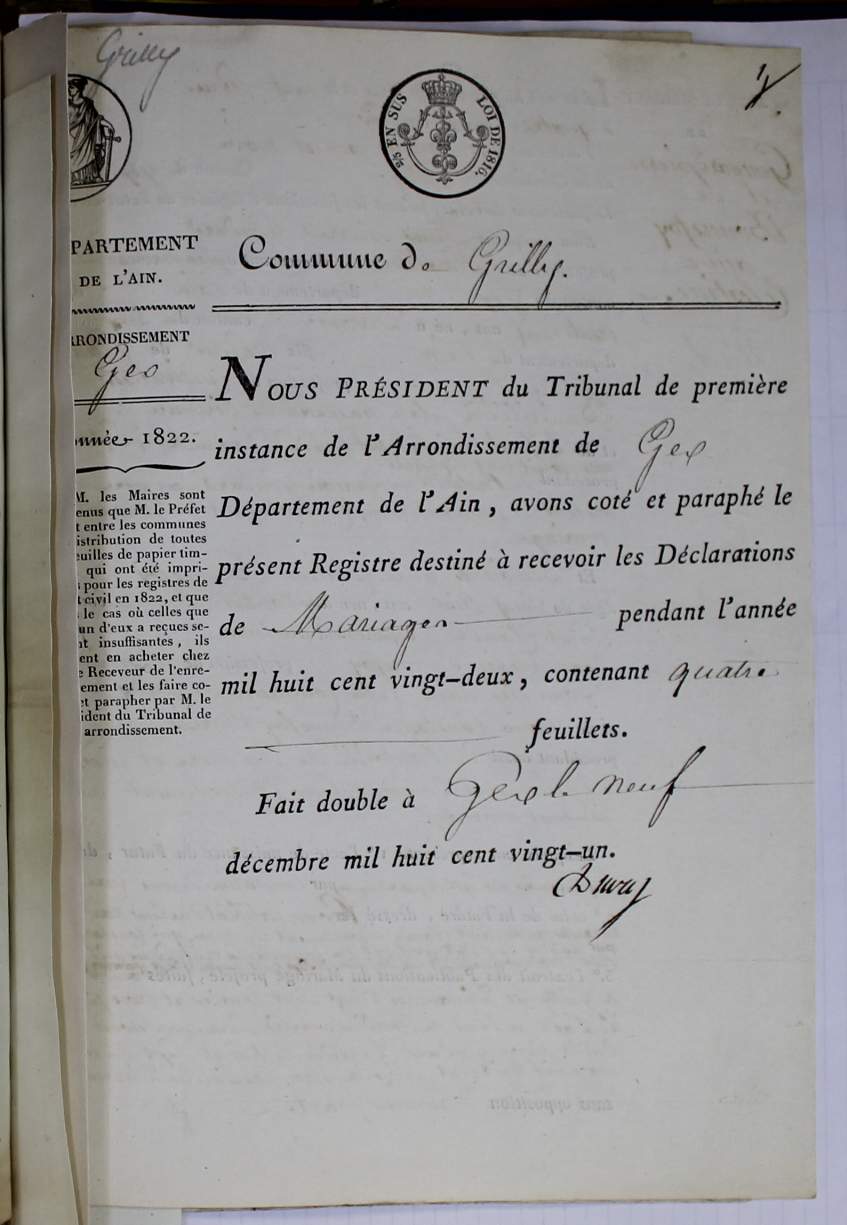 Grilly
2/5 EN SUS LOI DE 1816.
PARTEMENT
DE L'AIN.
RRONDISSEMENT
Gex
année 1822.
M. les Maires sont
enus que M. le Préfet
t entre les communes
istribution de toutes
euilles de papier tim-
qui ont été impri-
pour les registres de
t civil en 1822, et que
le cas où celles que
un d'eux a reçues se-
nt insuffisantes, ils
ent en acheter chez
e Receveur de l'enre-
ement et les faire co-
et parapher par M. le
ident du Tribunal de
arrondissement.
Commune de Grilly.
NOUS PRÉSIDENT du Tribunal de première
instance de l'Arrondissement de Gex
Département de l'Ain, avons coté et paraphé le
présent Registre destiné à recevoir les Déclarations
de Mariages pendant l'année
mil huit cent vingt-deux, contenant quatre
feuillets.
Fait double à Gex le neuf
décembre mil huit cent vingt-un.